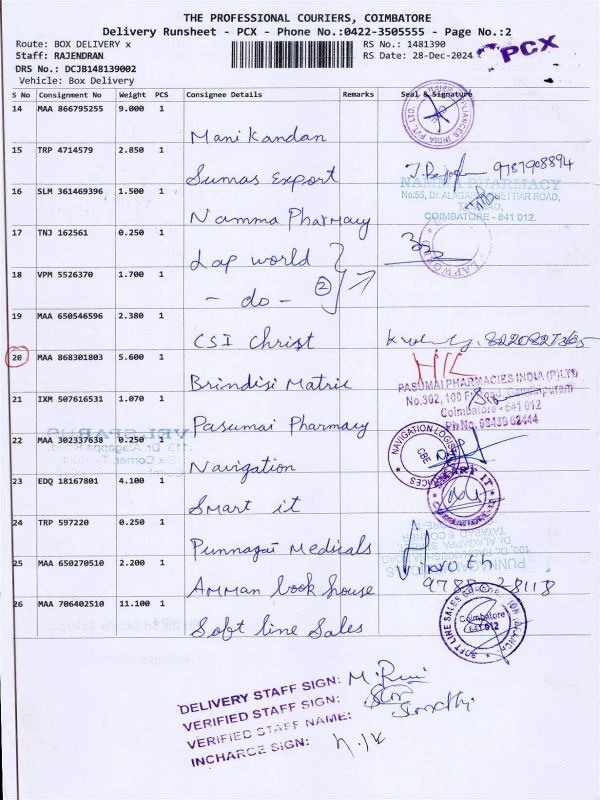 THE PROFESSIONAL COURIERS, COIMBATORE
Delivery Runsheet - PCX - Phone No.:0422-3505555 - Page No.:2
Route: BOX DELIVERY x
RS No.: 1481390
PCX
Staff: RAJENDRAN
RS Date: 28-Dec-2024
DRS No.: DCJB148139002
Vehicle: Box Delivery
S No Consignment No Weight PCS Consignee Details Remarks Seal & Signature
14 MAA 866795255 9.000 1
Manikandan
15 TRP 4714579 2.850 1
Sumas Export 9787908894
16 SLM 361469396 1.500 1
NAMMA PHARMACY
No.55, Dr. ALAGAPPA CHETTIAR ROAD,
COIMBATORE - 641 012.
Namma Pharmacy
17 TNJ 162561 0.250 1
Lap world
LAPWORLD
18 VPM 5526370 1.700 1
- do - 2
19 MAA 650546596 2.380 1
CSI Christ
20 MAA 868301803 5.600 1
Brindisi Matric
PASUMAI PHARMACIES INDIA (P) LTD
No.302, 100 Ft Road, Gandhipuram
Coimbatore - 641 012
Ph No. 98430 62444
21 IXM 507616531 1.070 1
Pasumai Pharmacy
22 MAA 302337638 0.250 1
Navigation
NAVIGATION LOGISTICS
CBE
23 EDQ 18167801 4.100 1
Smart it
SMART IT
24 TRP 597220 0.250 1
Punnagai Medicals
25 MAA 650270510 2.200 1
Vinoth
Amman book house
26 MAA 706402510 11.100 1
Soft line Sales
SOFT LINE SALES
Coimbatore
641 012
DELIVERY STAFF SIGN:
VERIFIED STAFF SIGN:
VERIFIED STAFF NAME:
INCHARGE SIGN: